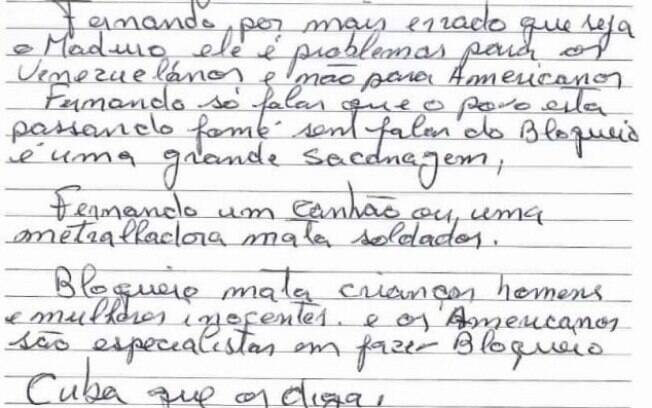 Fernando, por mais errado que seja
o Maduro ele é problemas para os
Venezuelános e não para Americanos
Fernando só falar que o povo está
passando fome sem falar do Bloqueio
é uma grande sacanagem,
Fernando um canhão ou uma
metralhadora mata soldados.
Bloqueio mata crianças homens
e mulheres inocentes. e os Americanos
são especialistas em fazer Bloqueio
Cuba que os diga.